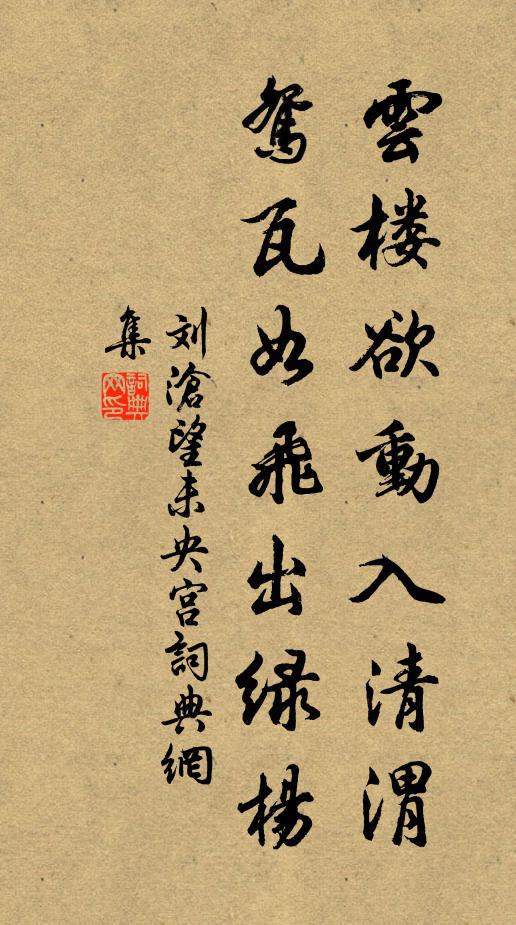 雲楼欲動入清渭
鸳瓦如飛出緑楊
刘滄望未央宫詞典網
集
詞典網印